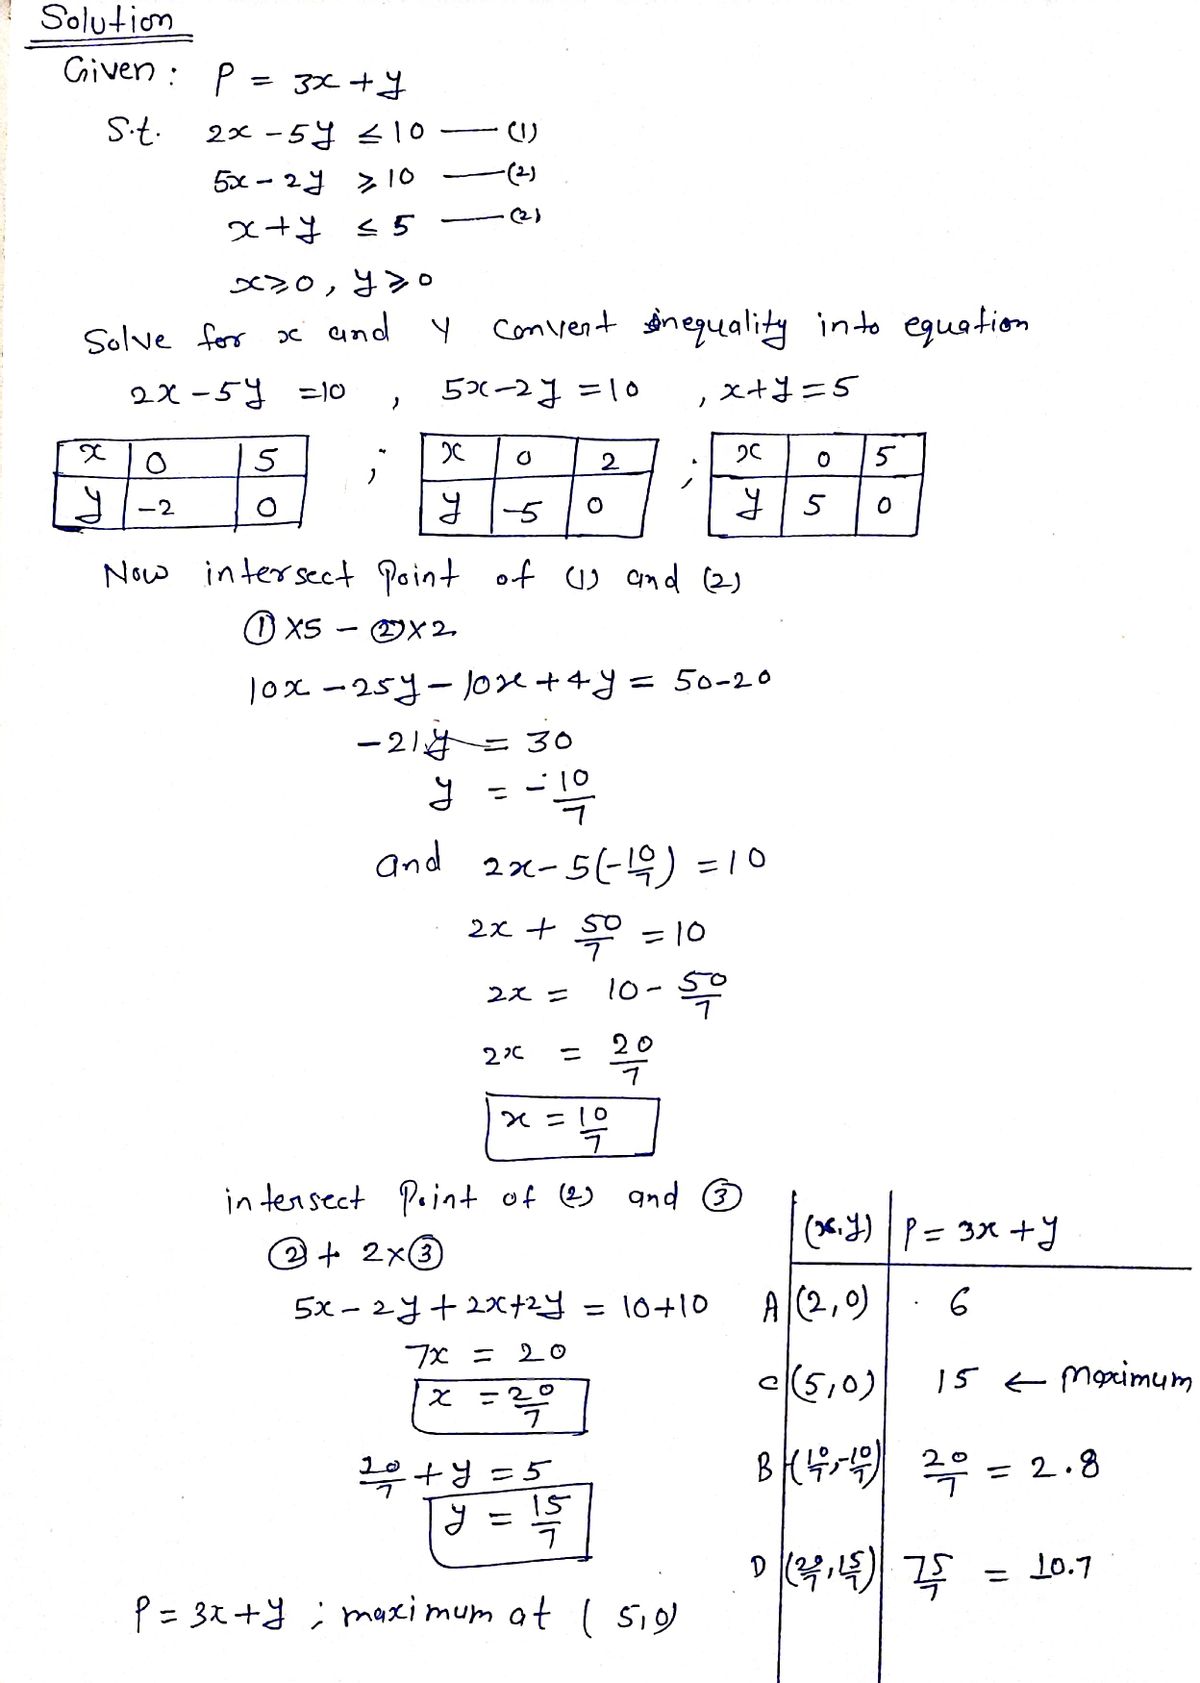 Solution
Given : P = 3x + y
S.t. 2x - 5y ≤ 10 — (1)
5x - 2y ≥ 10 — (2)
x + y ≤ 5 — (2)
x ≥ 0, y ≥ 0
Solve for x and y convert inequality into equation
2x - 5y = 10 , 5x - 2y = 10 , x + y = 5
x 0 5 ; x 0 2 ; x 0 5
y -2 0 y -5 0 y 5 0
Now intersect Point of (1) and (2)
① x5 - ② x 2
10x - 25y - 10x + 4y = 50 - 20
-21y = 30
y = -10/7
and 2x - 5(-10/7) = 10
2x + 50/7 = 10
2x = 10 - 50/7
2x = 20/7
x = 10/7
intersect Point of (2) and ③
② + 2 x ③
5x - 2y + 2x + 2y = 10 + 10
7x = 20
x = 20/7
20/7 + y = 5
y = 15/7
P = 3x + y ; maximum at ( 5,0)
(x,y) P = 3x + y
A (2,0) 6
C (5,0) 15 ← Maximum
B (10/7, -10/7) 20/7 = 2.8
D (20/7, 15/7) 75/7 = 10.7